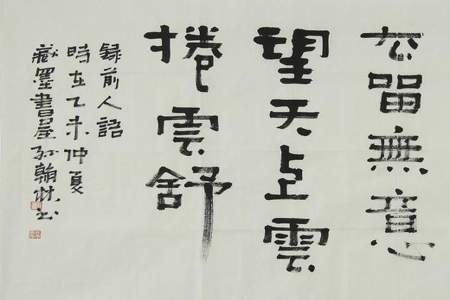 去留無意
望天上雲
捲雲舒
録前人語
時在乙未仲夏
墨書屋孫翰书